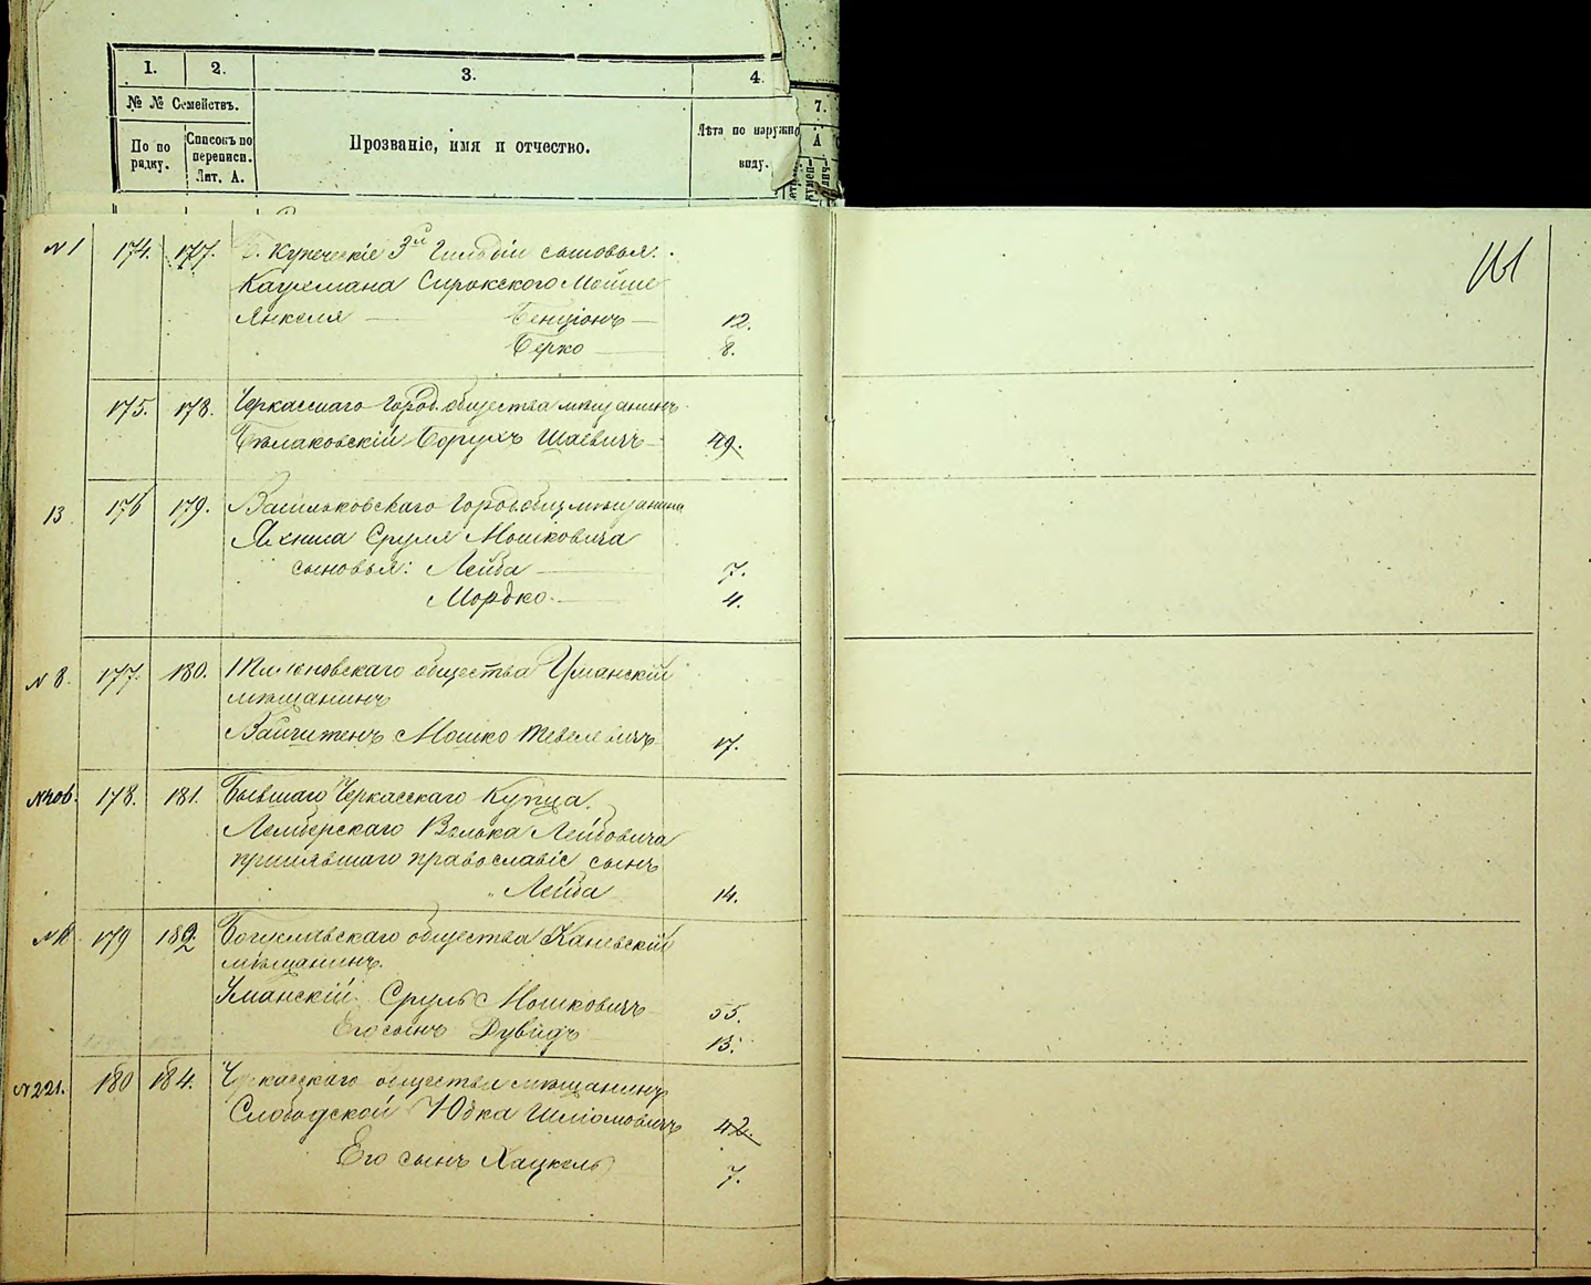 1. 2. 3. 4.
7.
№ № Семействъ.
По по
рядку.
Списокъ по
переписи.
Лит. А.
Прозваніе, имя и отчество.
Лѣта по наружно
виду.
А
161
N 1 174. 177. Б. Купеческіе 3й Гильдіи сыновья:
Сирокского Мошке
Янкеля — Бенціонъ — 12.
Берко — 8.
175. 178. Черкасскаго Город. общества мѣщанинъ
Бѣлаковскій Борухъ Шаевичъ 49.
13 176 179. Васильковскаго Город. общ. мѣщанина
Сруля Мошковича
сыновья: Лейба — 7.
Мордко — 4.
N 8. 177. 180. общества Уманскій
мѣщанинъ
Мошко Тевелевичъ 17.
178. 181. Бывшаго Черкасскаго Купца
Лемберскаго Волька Лейбовича
принявшаго православіе сынъ
Лейба 14.
179 182. Богуславскаго общества Каневскій
мѣщанинъ.
Уманскій Сруль Мошковичъ 55.
Его сынъ Дувидъ 13.
N 221. 180 184. Черкасскаго общества мѣщанинъ
Слободской Юдка Шліомовичъ 42.
Его сынъ Хацкель 7.